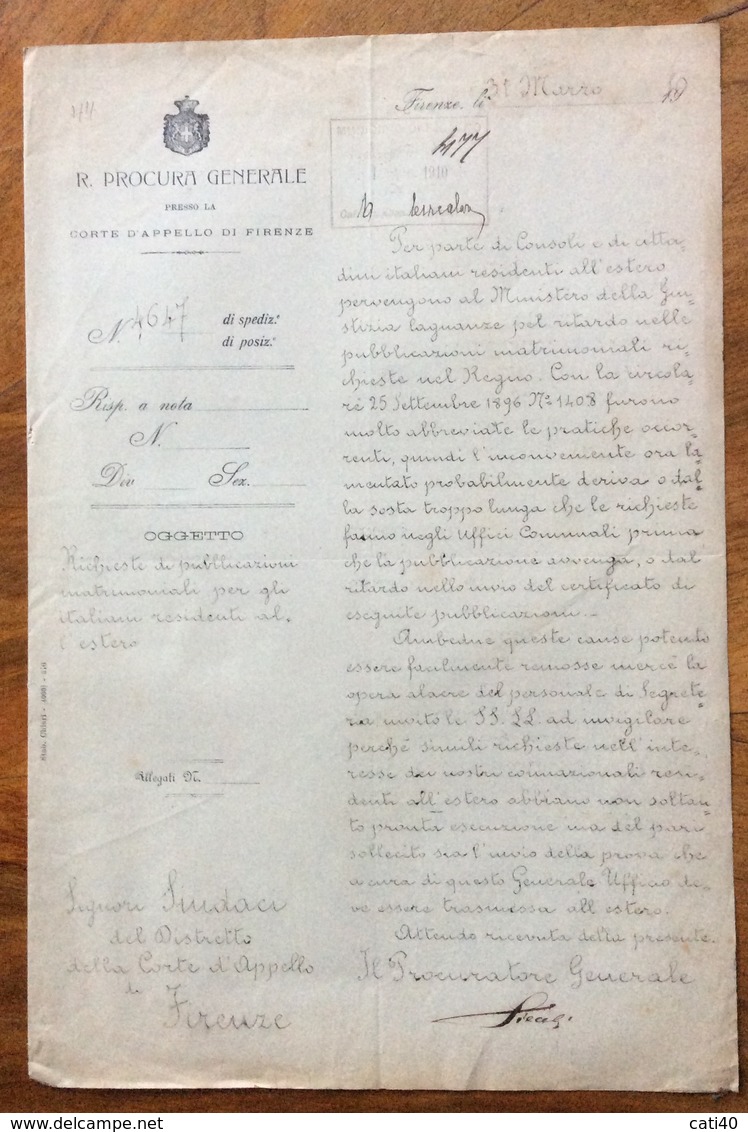 R. PROCURA GENERALE
PRESSO LA
CORTE D'APPELLO DI FIRENZE
N. 4647 di spediz.e
di posiz.e
Risp. a nota
N.
Div. Sez.
OGGETTO
Richieste di pubblicazioni
matrimoniali per gli
italiani residenti al-
l'estero
Allegati N.
Signori Sindaci
del Distretto
della Corte d'Appello
di
Firenze
Firenze, li 31 Marzo 19
477
1910
Per parte di Consoli e di citta-
dini italiani residenti all'estero
pervengono al Ministero della Giu-
stizia lagnanze pel ritardo nelle
pubblicazioni matrimoniali ri-
chieste nel Regno. Con la circola-
re 25 Settembre 1896 No 1408 furono
molto abbreviate le pratiche occor-
renti, quindi l'inconveniente ora la-
mentato probabilmente deriva o dal-
la sosta troppo lunga che le richieste
fanno negli Uffici Comunali prima
che la pubblicazione avvenga, o dal
ritardo nello invio del certificato di
eseguite pubblicazioni.-
Ambedue queste cause potendo
essere facilmente rimosse mercè la
opera alacre del personale di Segrete-
ria invito le SS. LL. ad invigilare
perchè simili richieste nell'inte-
resse dei nostri connazionali resi-
denti all'estero abbiano non soltan-
to pronta esecuzione ma del pari
sollecito sia l'invio della prova che
a cura di questo Generale Ufficio de-
ve essere trasmessa all'estero.
Attendo ricevuta della presente.
Il Procuratore Generale
cati40